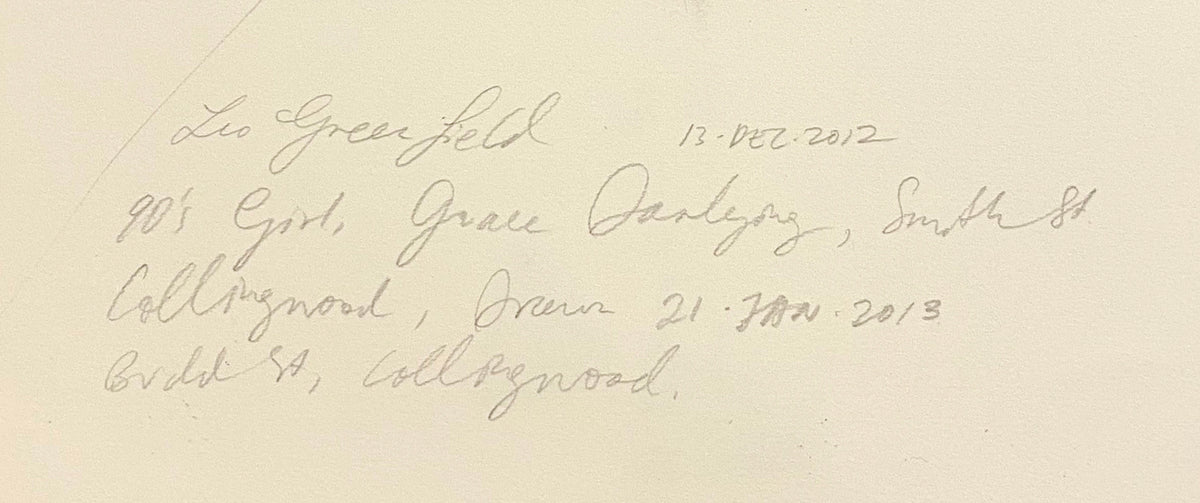 Leo Greenfield 13.DEC.2012
90's Girl, Grace Darlying, Smith St
Collingwood, Drawn 21.JAN.2013
Budd St, Collingwood.